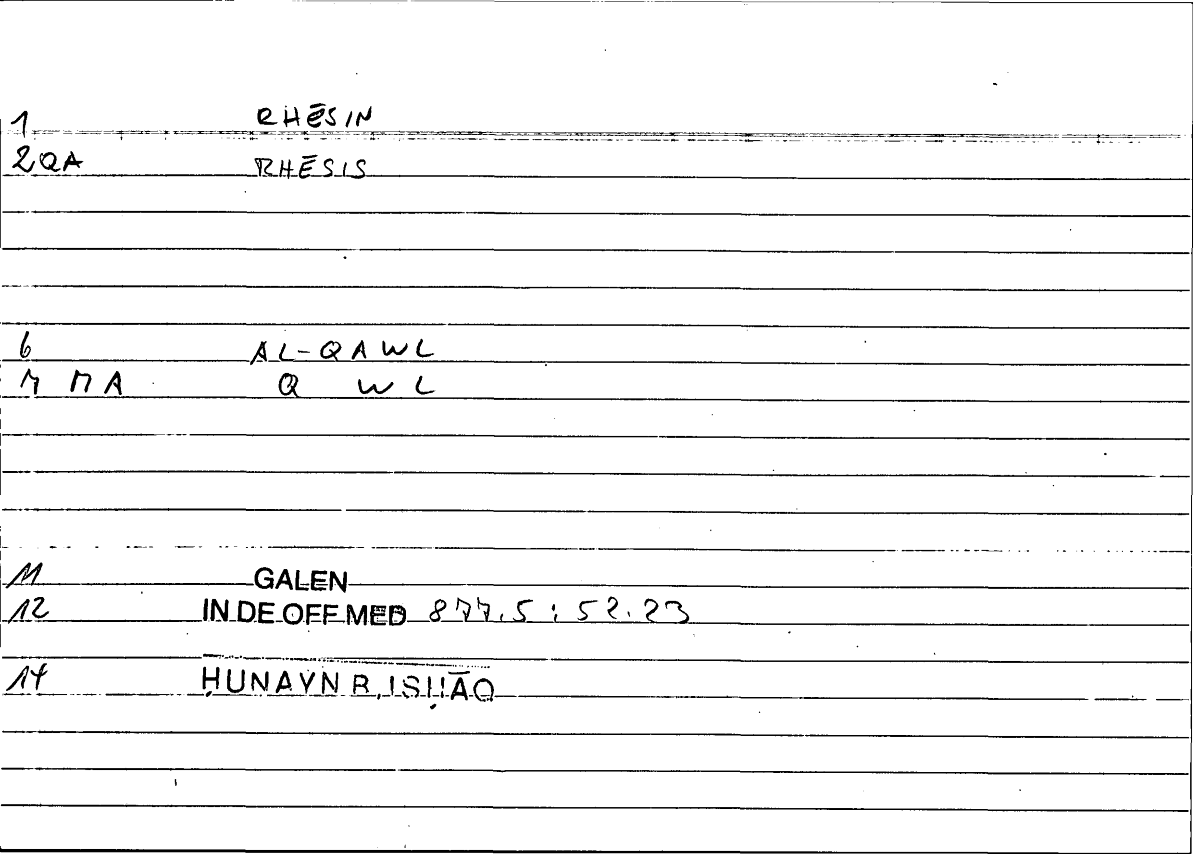 1 RHĒSIN
2 QA RHĒSIS
6 AL-QAWL
7 MA Q WL
11 GALEN
12 IN DE OFF MED 877.5 : 52.23
14 ḤUNAYN B. ISḤĀQ